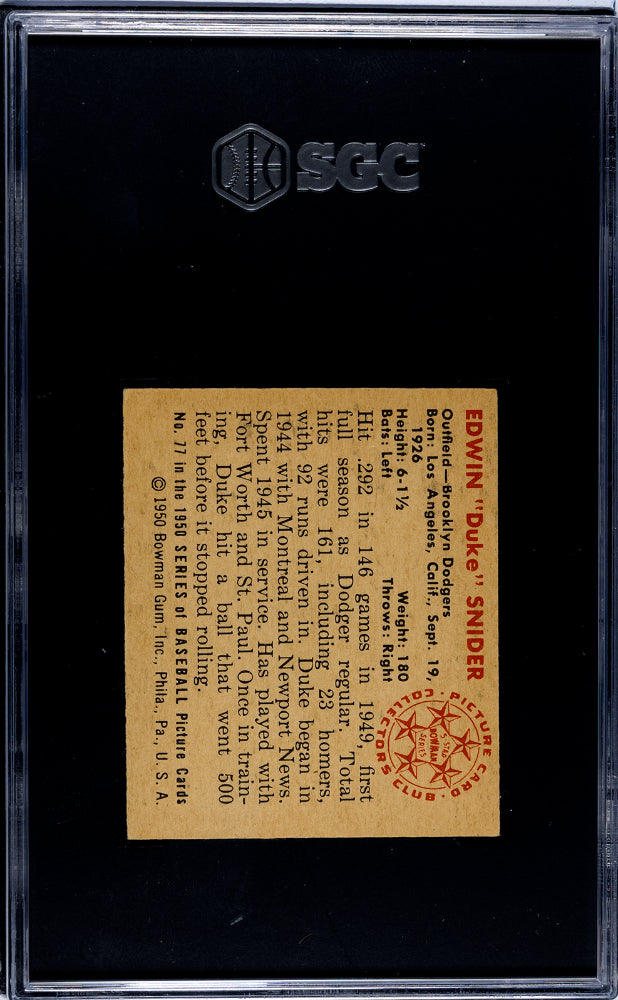 SGC
EDWIN "Duke" SNIDER
Outfield—Brooklyn Dodgers
Born: Los Angeles, Calif., Sept. 19,
1926
Height: 6-1½ Weight: 180
Bats: Left Throws: Right
PICTURE CARD COLLECTORS CLUB
5 STAR
BOWMAN
SERIES
Hit .292 in 146 games in 1949, first
full season as Dodger regular. Total
hits were 161, including 23 homers,
with 92 runs driven in. Duke began in
1944 with Montreal and Newport News.
Spent 1945 in service. Has played with
Fort Worth and St. Paul. Once in train-
ing, Duke hit a ball that went 500
feet before it stopped rolling.
No. 77 in the 1950 SERIES of BASEBALL Picture Cards
©1950 Bowman Gum, Inc., Phila., Pa., U. S. A.